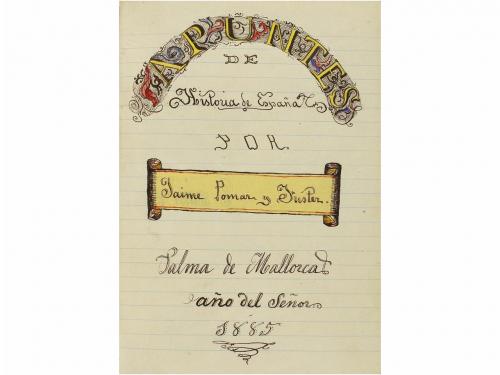 APUNTES
DE
Historia de España
POR
Jaime Pomar y Fuster.
Palma de Mallorca
año del Señor
1885